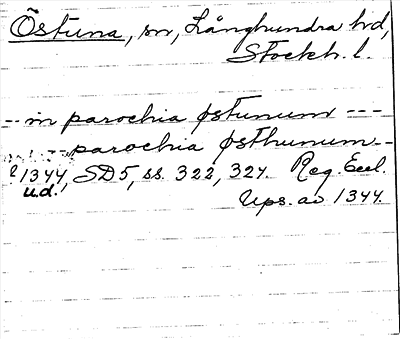 Östuna, sn, Långhundra hd,
Stockh. l.
-- in parochia østunum ---
-- parochia østhunum --
? 1344, SD5, ss. 322, 324. Reg. Eccl.
u.d. Ups. av 1344.